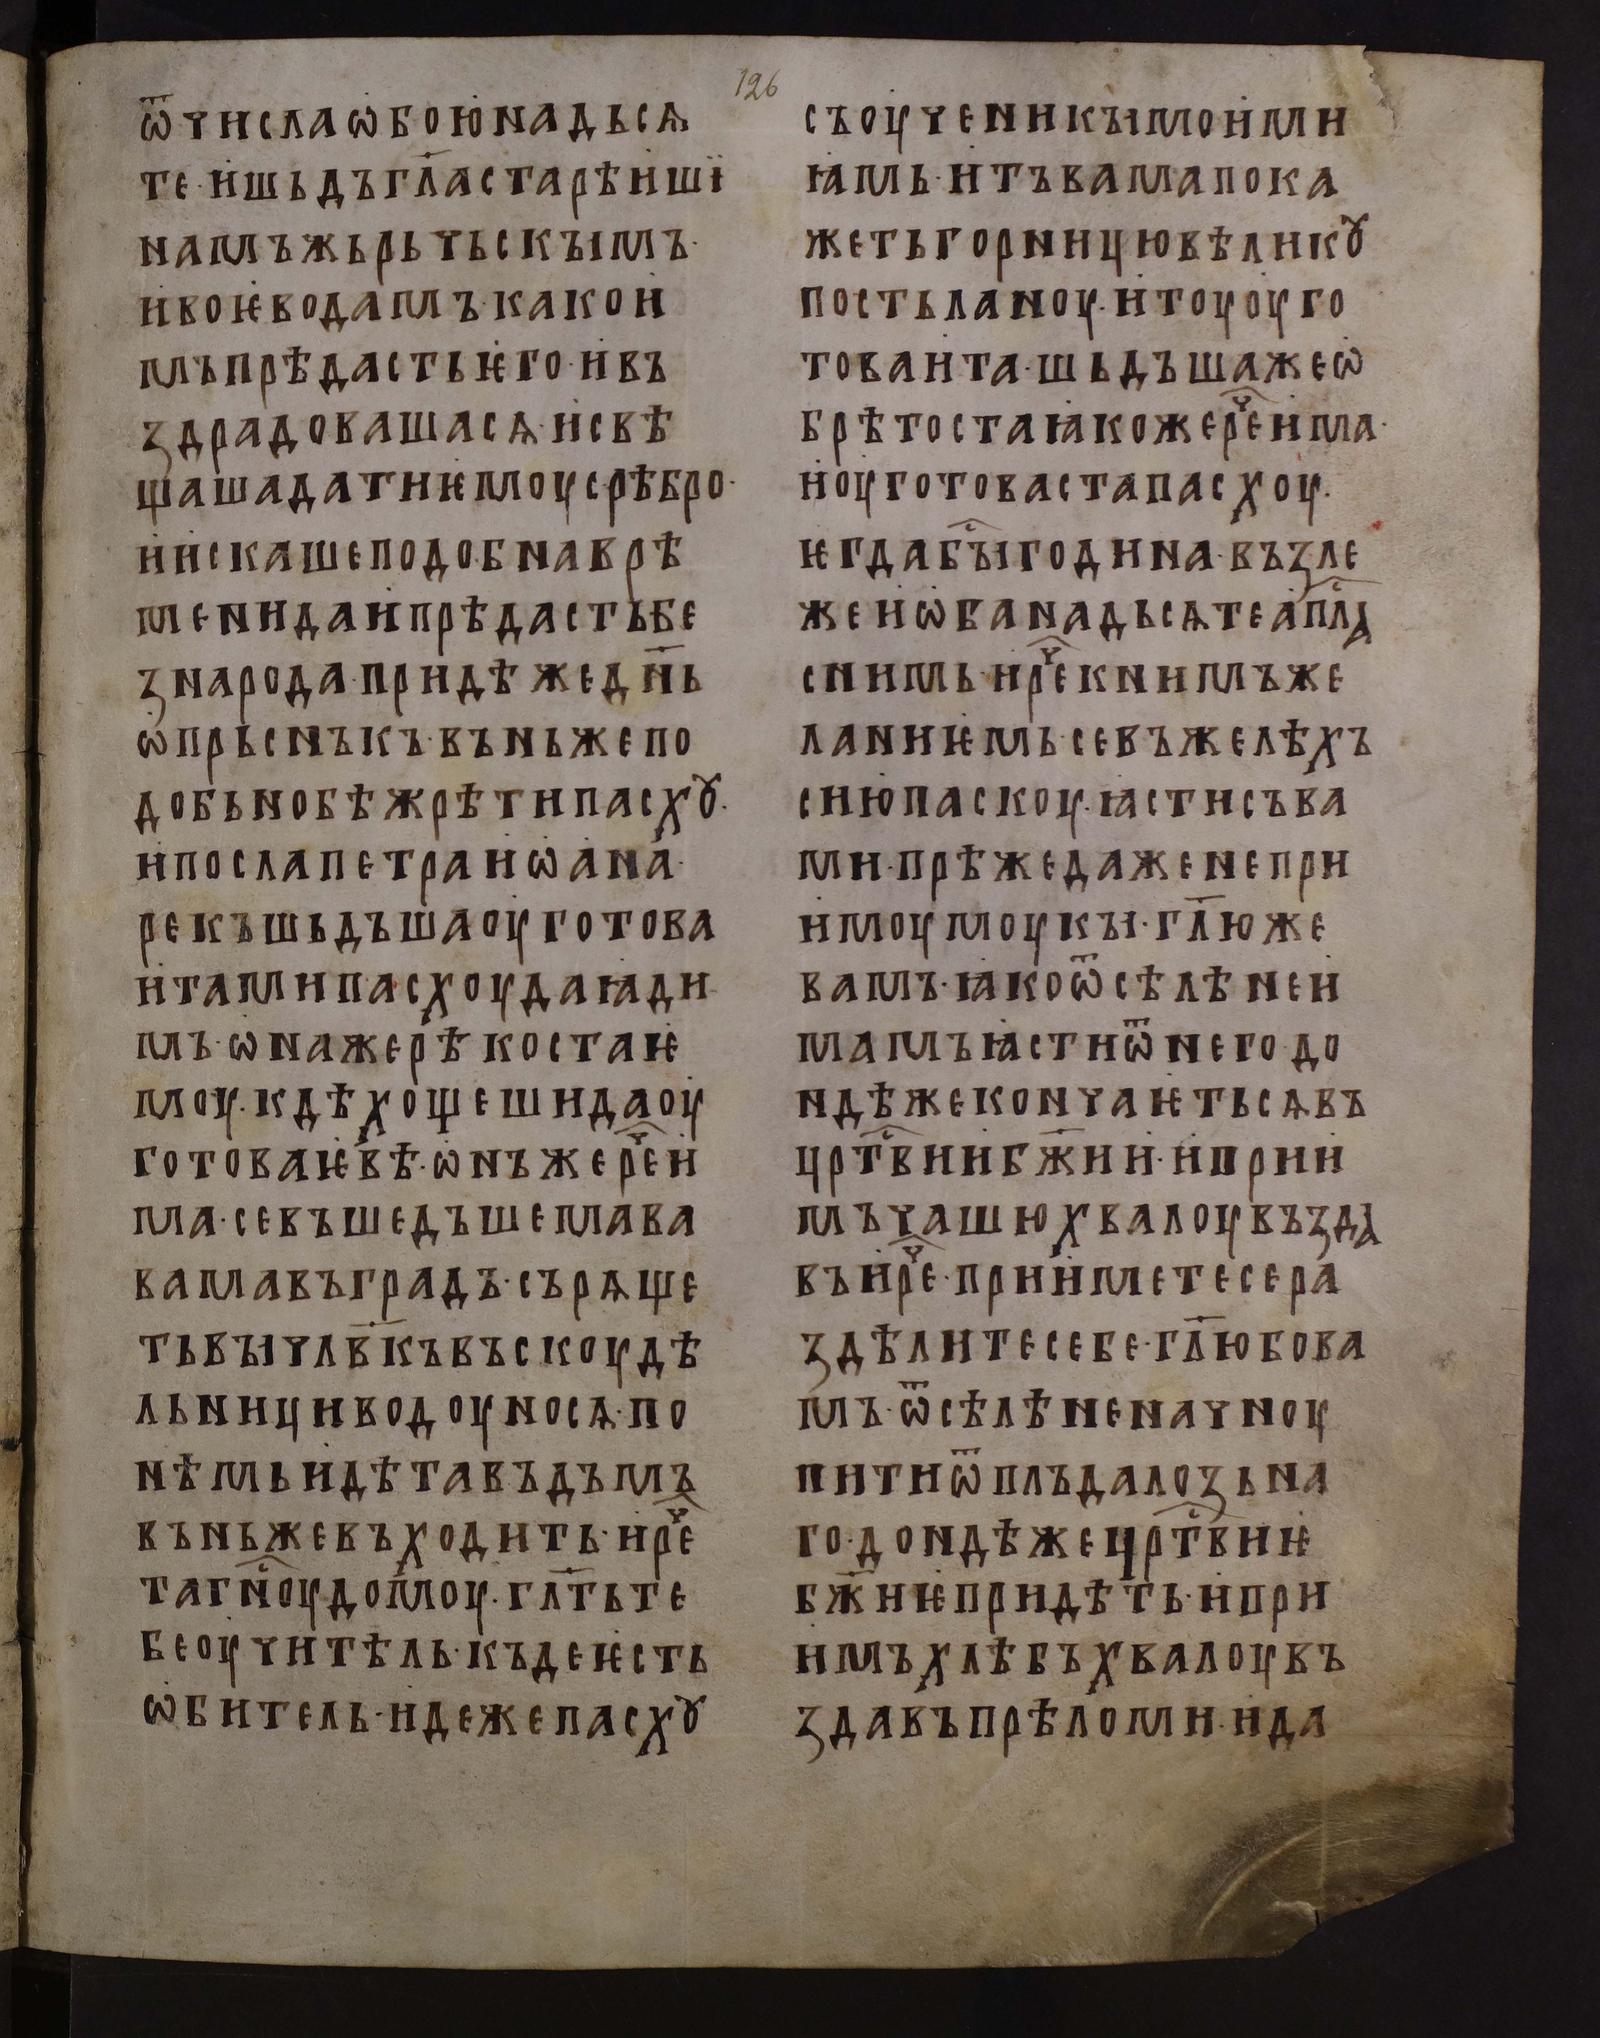 126
ѿчислаѡбоюнадьсѧ
те·ишьдъгл҃астарѣишї
намъжьрьчьскымъ·
ивоѥводамъ·какои
мъпрѣдастьѥго·ивъ
ꙁдрадовашасѧ·исвѣ
щашадатиѥмоусрѣбро·
иискашеподобнаврѣ
мениидаипрѣдастьбе
ꙁнарода·придѣжедн҃ь
ѡпрьснъкъ·въньжепо
добьнобѣжрѣтипасхꙋ·
ипослапетраиѡана·
рекъшьдъшаоуготова
итамипасхоудаꙗди
мъ·ѡнажерѣкостаѥ
моу·кдѣхощешидаоу
готоваѥвѣ·ѡнъжереⷱ҇и
ма·севъшедъшемава
вамавъградъ·сърѧще
тьвычлв҃къвъскоудѣ
льницииводоуносѧ·по
нѣмьидѣтавъдъмъ
въньжевъходить·иреⷱ҇
тагнⷭ҇оудомоу·гл҃тьте
беоучитѣль·къдеѥсть
ѡбитель·идежепасхꙋ
съоученикымоими
ꙗмь·итъвамапока
жетьгорницювѣликꙋ
постьланоу·итоуоуго
товаита·шьдъшажеѡ
брѣтостаꙗкожереⷱ҇има·
иоуготовастапасхоу·
ѥгдабыⷭ҇година·въꙁле
жеиѡбанадьсѧтеапⷭ҇лꙗ
снимь·иреⷱ҇книмъже
ланиѥмь·севъжелѣхъ
сиюпаскоу·ꙗстисъва
ми·прѣжедаженепри
имоумоукы·гл҃юже
вамъ·ꙗкоѿсѣлѣнеи
мамъꙗстиѿнегодо
ндѣжекончаѥтьсѧвъ
црⷭ҇твиибж҃ии·иприи
мъчашюхвалоувъꙁдꙗ
въиреⷱ҇·приимететесера
ꙁдѣлитесебе·гл҃юбова
мъ·ѿсѣлѣненачноу
питиѿплъдалоꙁьна
го·дондѣжецрⷭ҇твиѥ
бж҃иѥпридѣть·ипри
имъхлѣбъхвалоувъ
ꙁдавъпрѣломи·ида